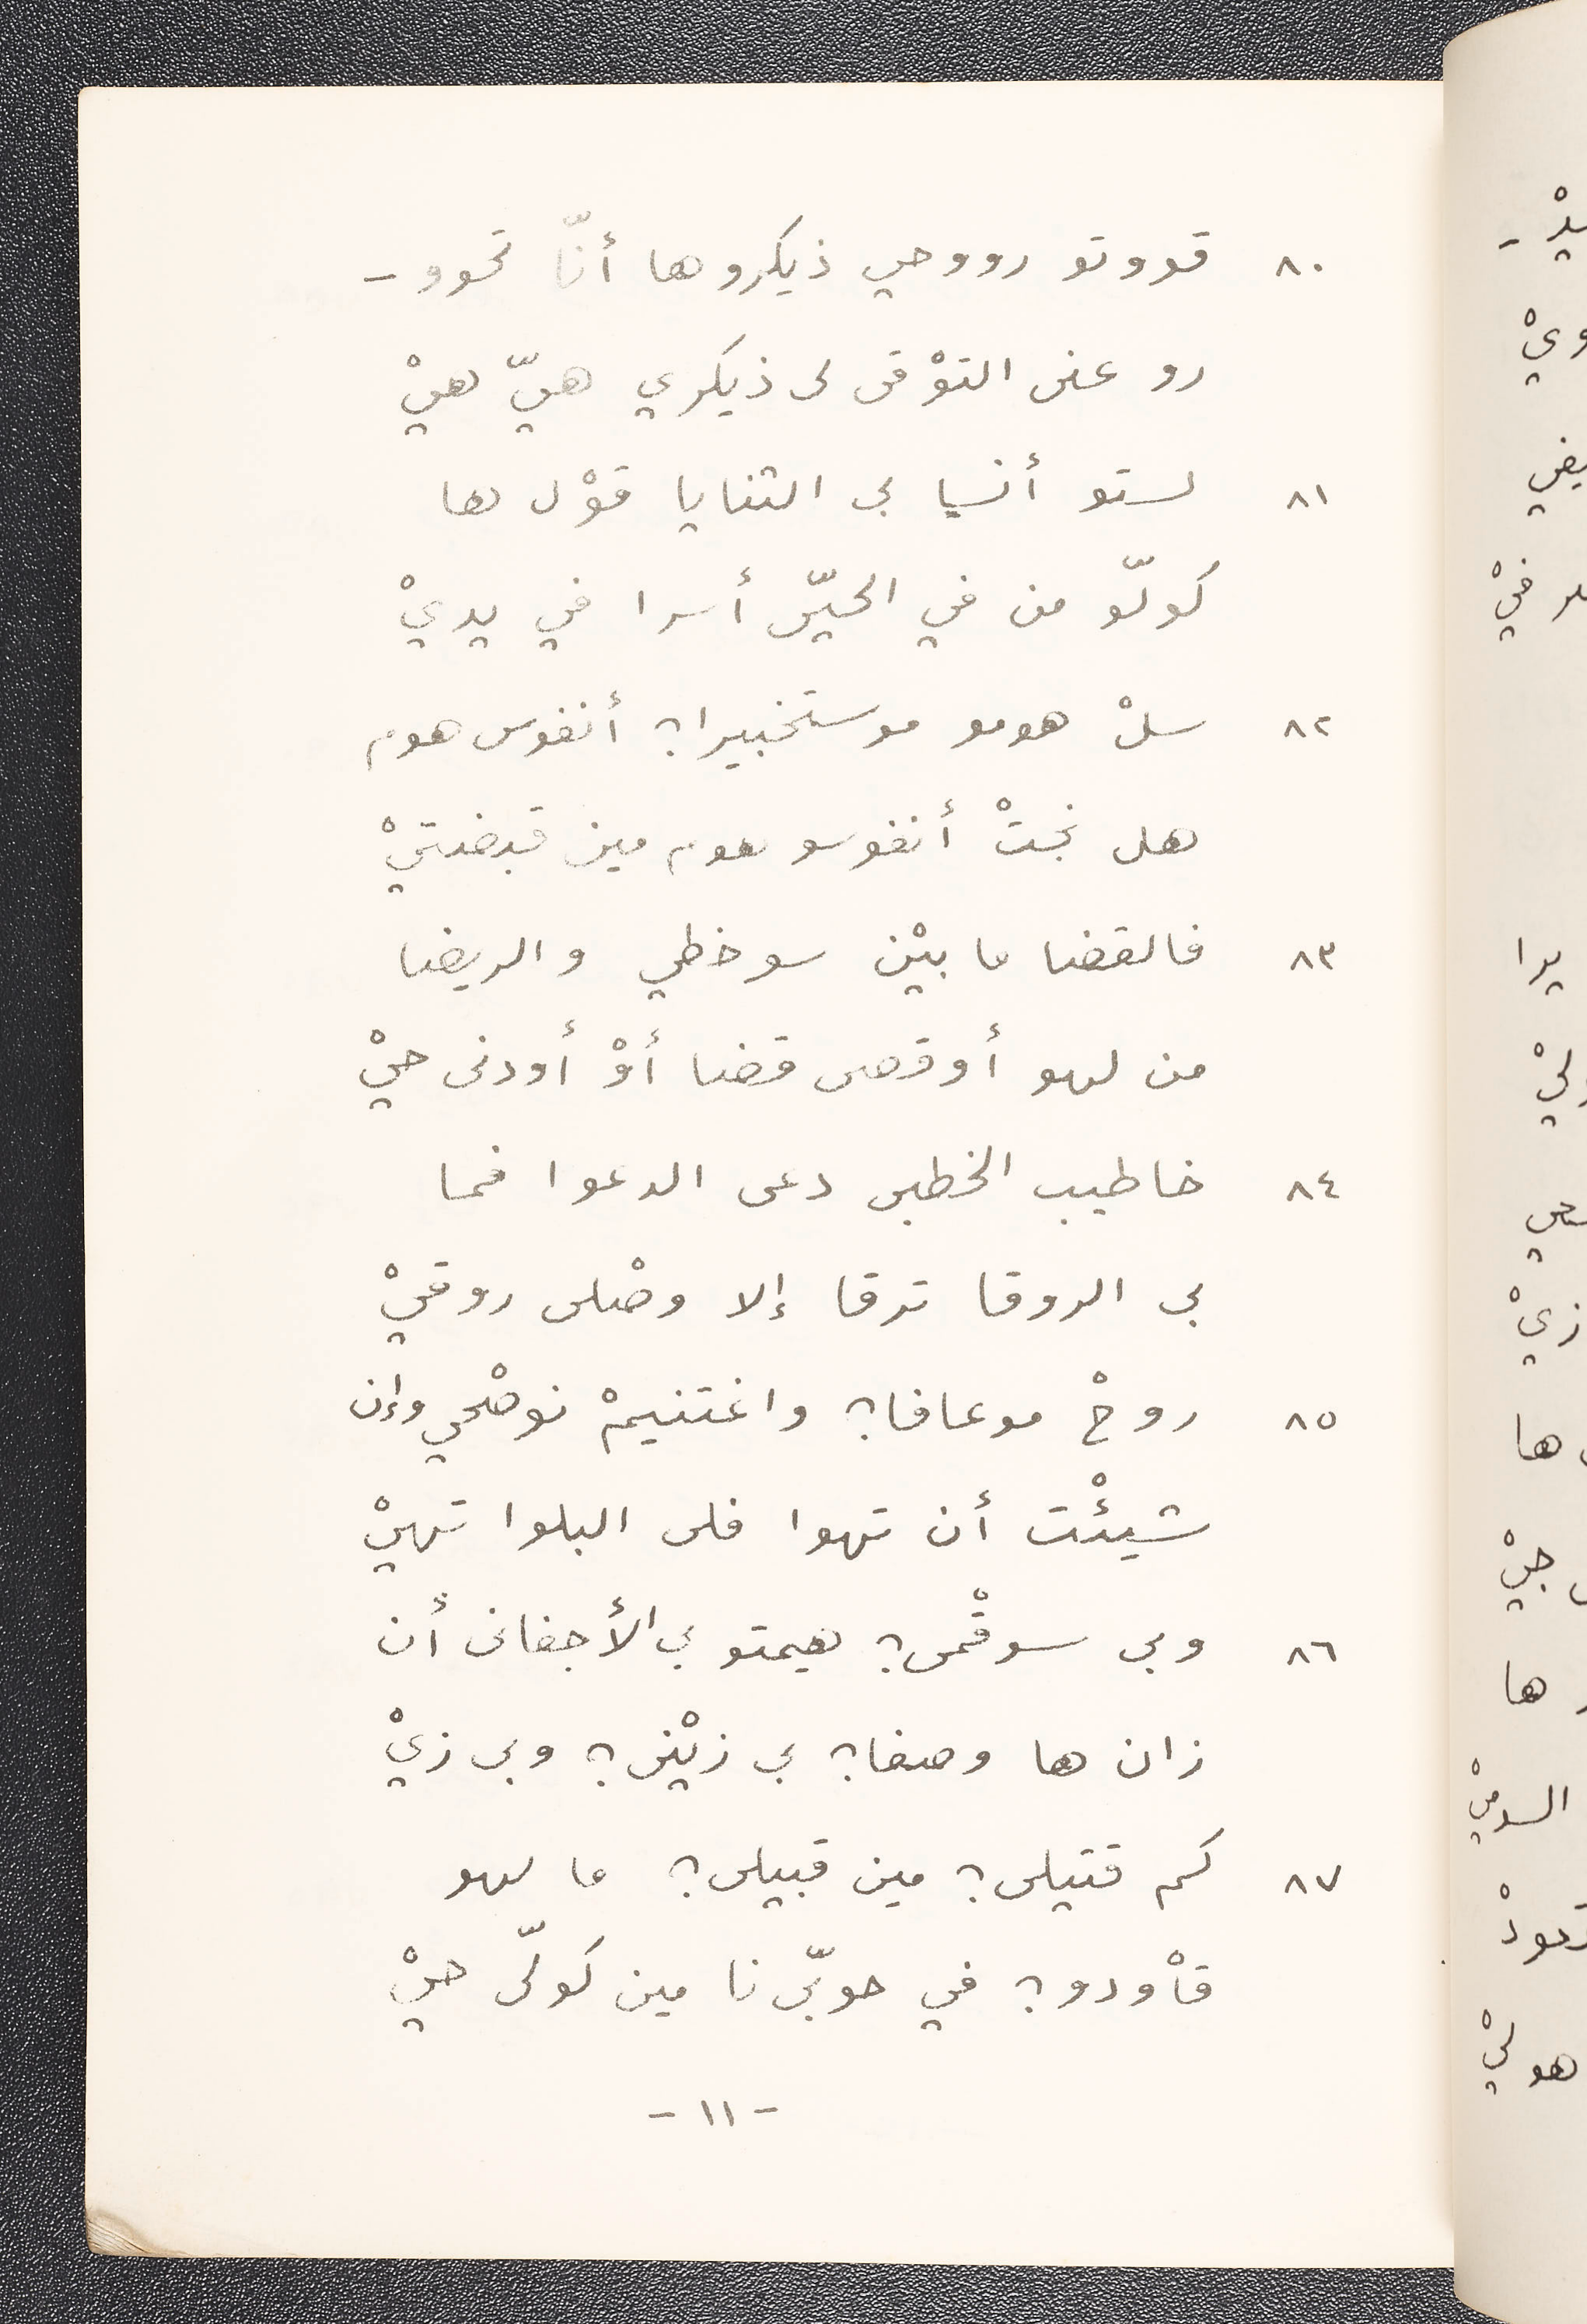 ٨٠ قووتو رووحي ذيكروها أنّا تحوو -
رو عنى التوْقى لى ذيكري هيّ هيْ
٨١ لستو أنسا بى الثنايا قوْلها
كولّو من في الحيّى أسرا في يديْ
٨٢ سلْ هومو موستخبيرا؟ أنفوسهوم
هل نجتْ أنفوسو هوم مين قبضتيْ
٨٣ فالقضا ما بيْن سوخطي والريضا
من لهو أوقصى قضا أوْ أودنى حيْ
٨٤ خاطيب الخطبى دعى الدعوا فما
بى الروقا ترقا إلا وصْلى روقيْ
٨٥ روحْ موعافا؟ واغتنيمْ نوصْحي وإن
شيئْت أن تهوا فلى البلوا تهيْ
٨٦ وبى سوقْمى؟ هيمتو بى الأجفانى أن
زان ها وصفا؟ بى زيْنى؟ وبى زيْ
٨٧ كم قتيلى؟ مين قبيلى؟ ما لهو
قأْودو؟ في حوبّى نا مين كولّى حيْ
- ١١ -
يدْ -
ويْ
يضي
فيْ
يرا
ليْ
زيْ
ها
جيْ
ها
السوميْ
هوليْ